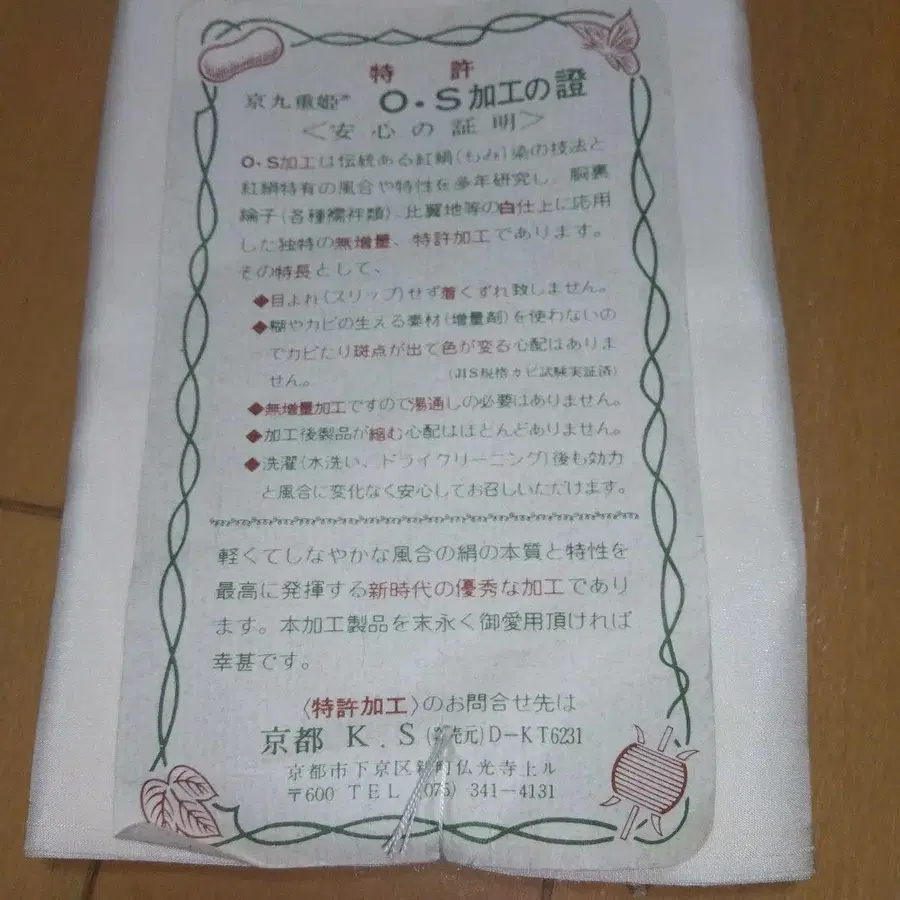 特許
京九重姫 O・S加工の證
＜安心の証明＞
O・S加工は伝統ある紅絹(もみ)染の技法と
紅絹特有の風合や特性を多年研究し、胴裏
綸子(各種襦袢類)、比翼地等の白仕上に応用
した独特の無増量、特許加工であります。
その特長として、
◆目よれ(スリップ)せず着くずれ致しません。
◆糊やカビの生える素材(増量剤)を使わないの
でカビたり斑点が出て色が変る心配はありま
せん。 (JIS規格カビ試験実証済)
◆無増量加工ですので湯通しの必要はありません。
◆加工後製品が縮む心配はほとんどありません。
◆洗濯(水洗い、ドライクリーニング)後も効力
と風合に変化なく安心してお召しいただけます。
軽くてしなやかな風合の絹の本質と特性を
最高に発揮する新時代の優秀な加工であり
ます。本加工製品を末永く御愛用頂ければ
幸甚です。
〈特許加工〉のお問合せ先は
京都 K.S(売元)D-KT6231
京都市下京区 町仏光寺上ル
〒600 TEL (075) 341-4131